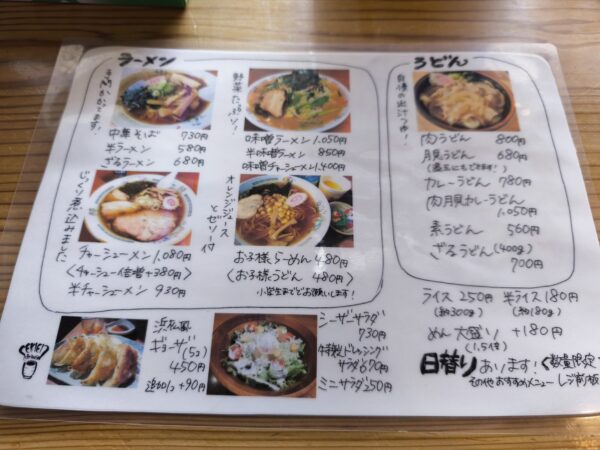 ラーメン
中華そば 730円
半ラーメン 580円
ざるラーメン 680円
野菜たっぷり!
味噌ラーメン 1,050円
半味噌ラーメン 850円
味噌チャーシューメン 1,400円
じっくり煮込みました
チャーシューメン 1,080円
〈チャーシュー倍増+380円〉
半チャーシューメン 930円
オレンジジュース
とゼリー付
お子様らーめん 480円
〈お子様うどん 480円〉
小学生まででお願いします!
うどん
自慢の出汁つゆ!
肉うどん 800円
月見うどん 680円
カレーうどん 780円
1,050円
素うどん 560円
ざるうどん(400g)
700円
ライス 250円 半ライス 180円
(約300g) (約180g)
めん 大盛り +180円
(1.5倍)
日替り あります!〈数量限定
その他 おすすめメニュー レジ前
浜松風
ギョーザ
(5コ)
450円
追加1コ +90円
シーザーサラダ
730円
特製ドレッシング
サラダ 670円
ミニサラダ 250円